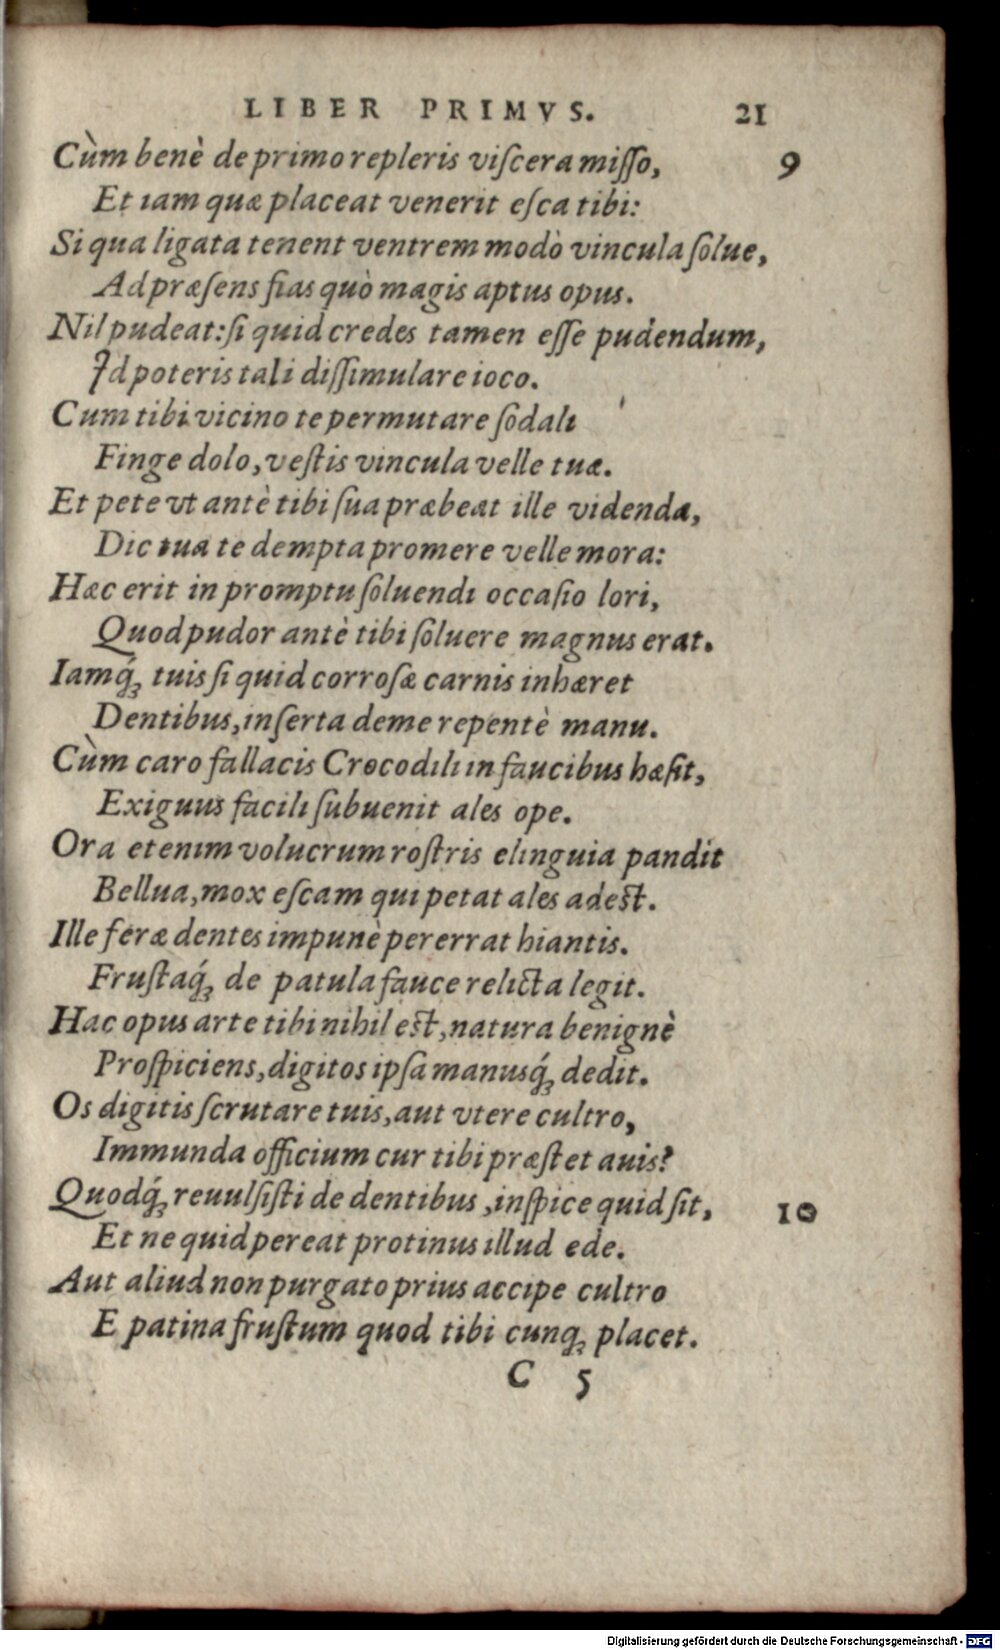 LIBER PRIMVS. 21
Cùm benè de primo repleris viſcera miſſo, 9
Et iam quæ placeat venerit eſca tibi:
Si qua ligata tenent ventrem modò vincula ſolue,
Ad præſens fias quò magis aptus opus.
Nil pudeat: ſi quid credes tamen eſſe pudendum,
Id poteris tali diſſimulare ioco.
Cum tibi vicino te permutare ſodali
Finge dolo, veſtis vincula velle tuæ.
Et pete vt antè tibi ſua præbeat ille videnda,
Dic tua te dempta promere velle mora:
Hæc erit in promptu ſoluendi occaſio lori,
Quod pudor antè tibi ſoluere magnus erat.
Iamq́ꝫ tuis ſi quid corroſæ carnis inhæret
Dentibus, inſerta deme repentè manu.
Cùm caro fallacis Crocodili in faucibus hæſit,
Exiguus facili ſubuenit ales ope.
Ora etenim volucrum roſtris elinguia pandit
Bellua, mox eſcam qui petat ales adeſt.
Ille feræ dentes impunè pererrat hiantis.
Fruſtaq́ꝫ de patula fauce relicta legit.
Hac opus arte tibi nihil eſt, natura benignè
Proſpiciens, digitos ipſa manusq́ꝫ dedit.
Os digitis ſcrutare tuis, aut vtere cultro,
Immunda officium cur tibi præſtet auis?
Quodq́ꝫ reuulſiſti de dentibus, inſpice quid ſit, 10
Et ne quid pereat protinus illud ede.
Aut aliud non purgato prius accipe cultro
E patina fruſtum quod tibi cunqꝫ placet.
C 5
Digitalisierung gefördert durch die Deutsche Forschungsgemeinschaft - DFG